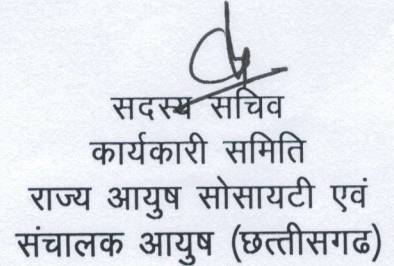 सदस्य सचिव
कार्यकारी समिति
राज्य आयुष सोसायटी एवं
संचालक आयुष (छत्तीसगढ)